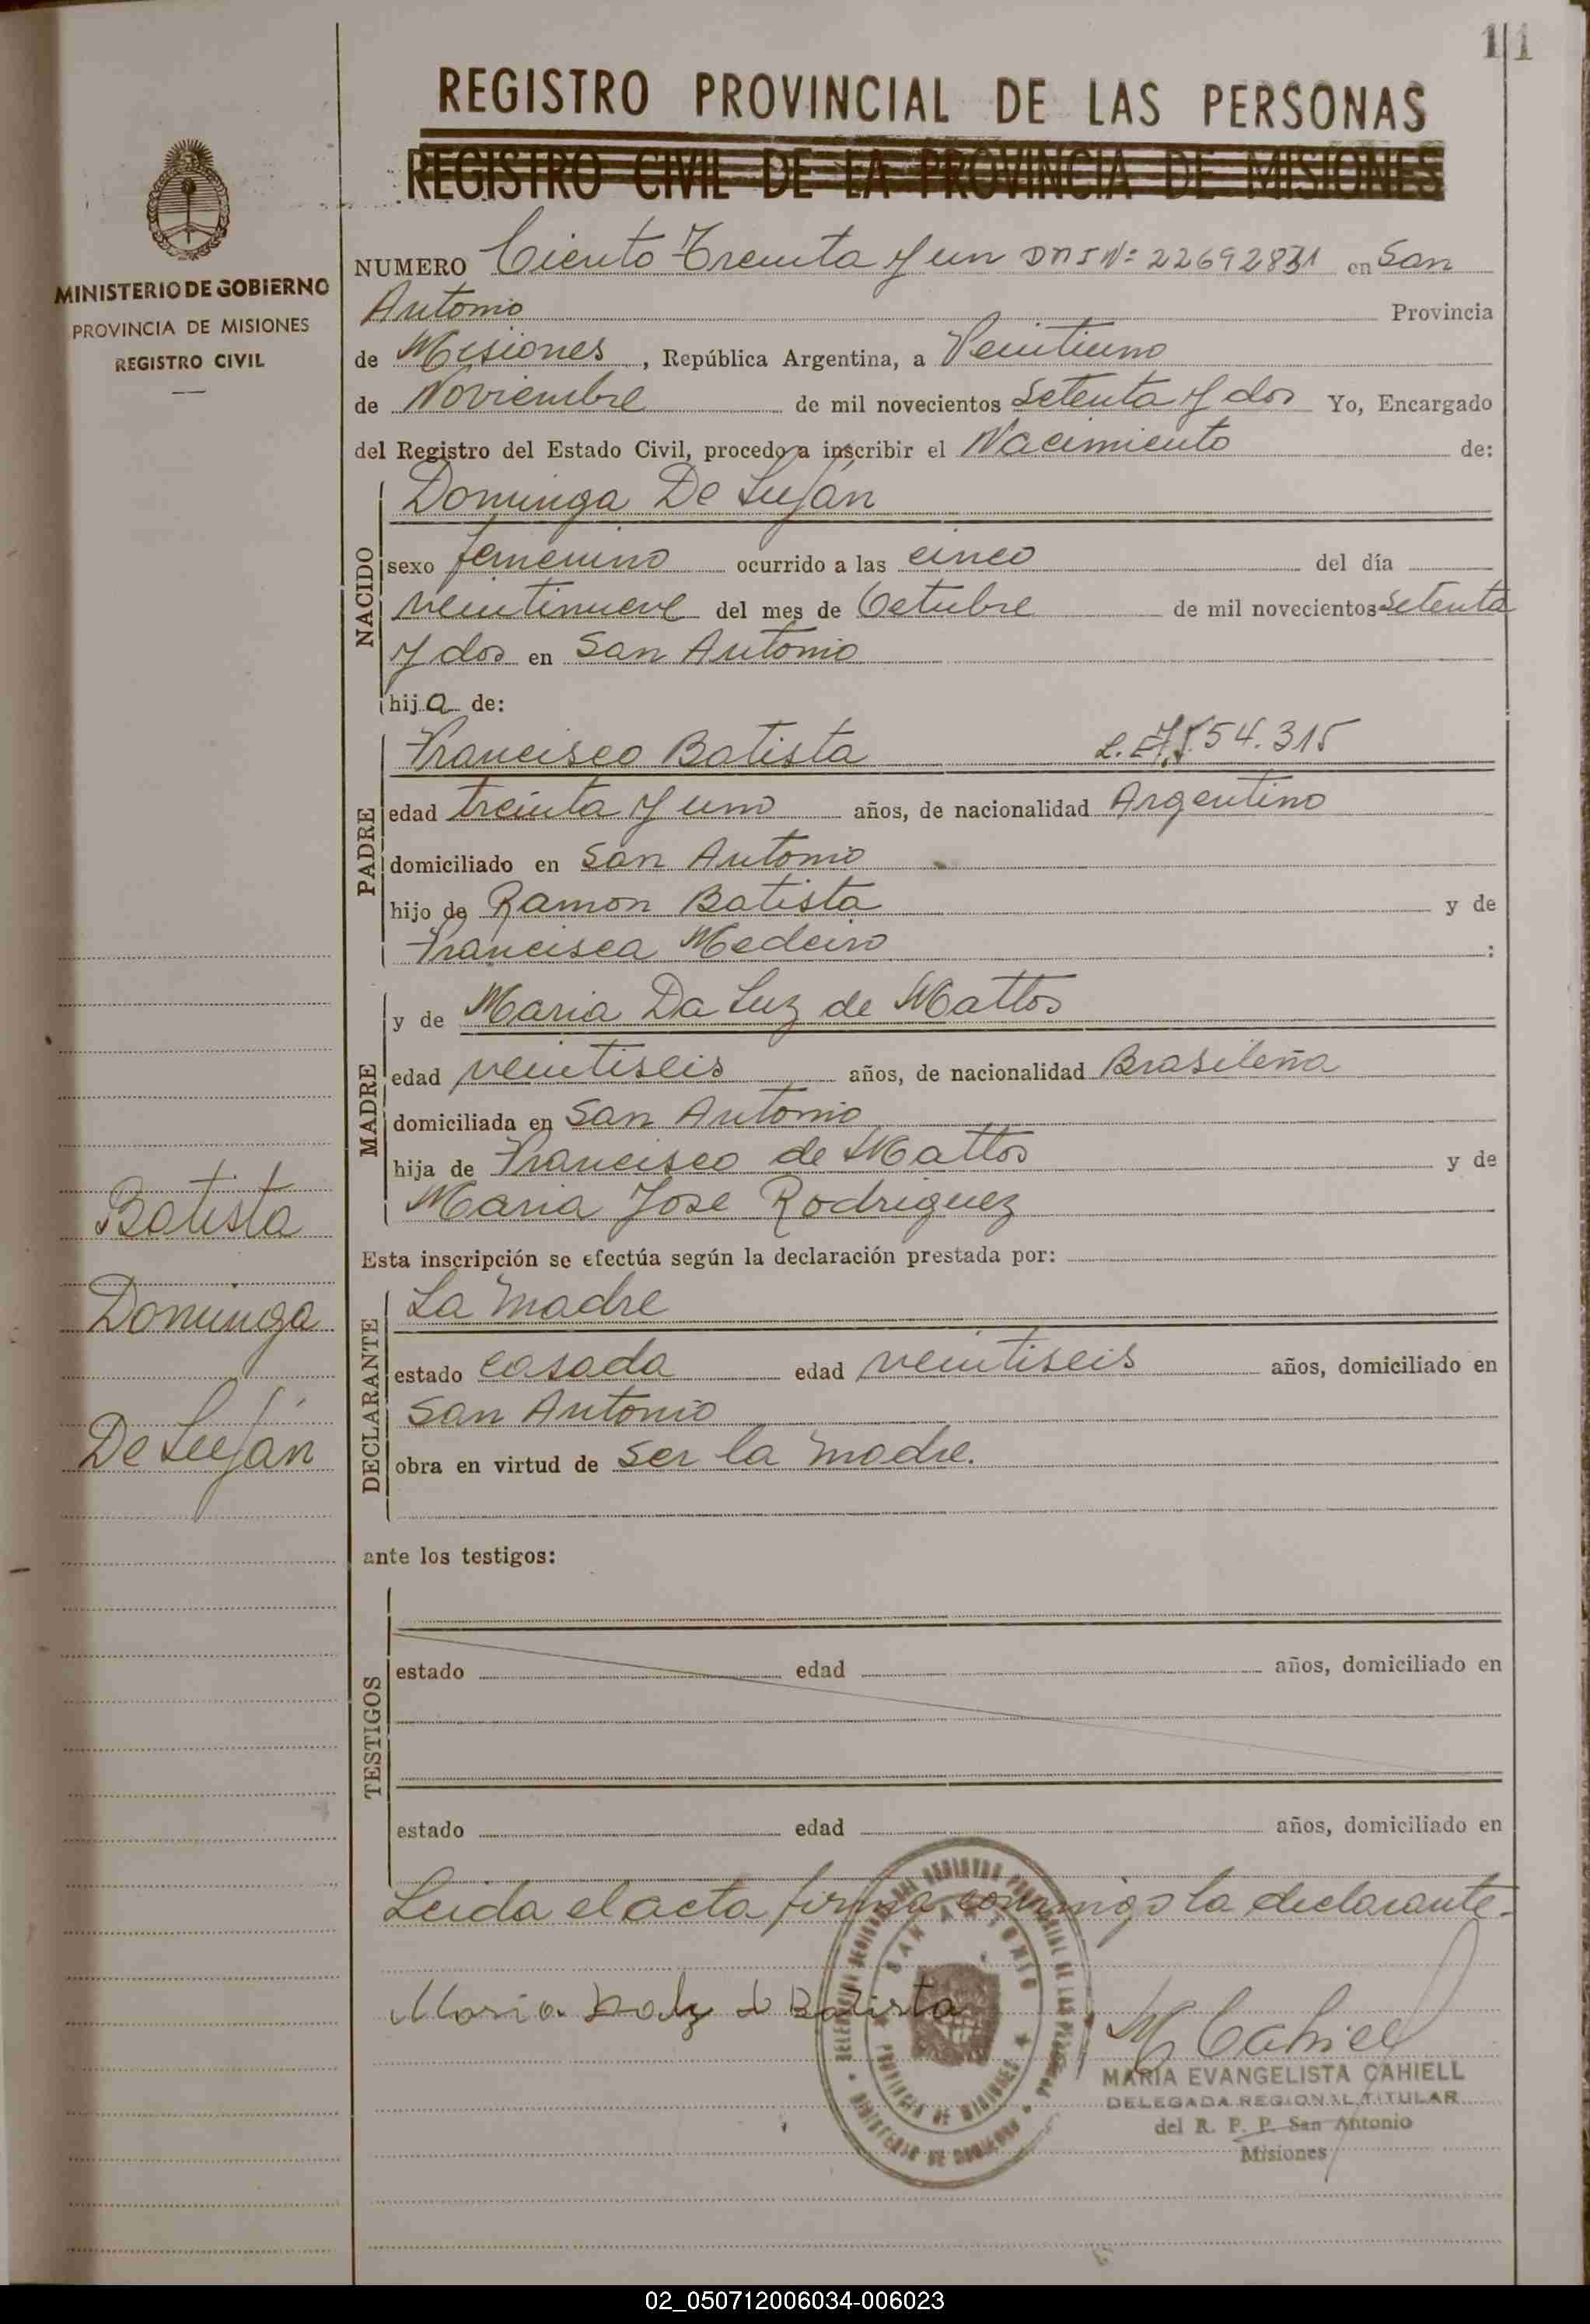 11
REGISTRO PROVINCIAL DE LAS PERSONAS
REGISTRO CIVIL DE LA PROVINCIA DE MISIONES
MINISTERIO DE GOBIERNO
PROVINCIA DE MISIONES
REGISTRO CIVIL
NUMERO Ciento Treinta y un DNI Nº 22692831 en San
Antonio Provincia
de Misiones, República Argentina, a Veintiuno
de Noviembre de mil novecientos Setenta y dos Yo, Encargado
del Registro del Estado Civil, procedo a inscribir el Nacimiento de:
NACIDO
Dominga De Luján
sexo femenino ocurrido a las cinco del día
veintinueve del mes de Octubre de mil novecientos Setenta
y dos en San Antonio
hija de:
PADRE
Francisco Batista L. 54.315
edad treinta y uno años, de nacionalidad Argentino
domiciliado en San Antonio
hijo de Ramon Batista y de
Francisca Medeiro :
MADRE
y de Maria Da Luz de Mattos
edad veintiseis años, de nacionalidad Brasileña
domiciliada en San Antonio
hija de Francisco de Mattos y de
Maria Jose Rodriguez
Batista
Dominga
De Luján
Esta inscripción se efectúa según la declaración prestada por:
DECLARANTE
La madre
estado casada edad veintiseis años, domiciliado en
San Antonio
obra en virtud de ser la madre.
ante los testigos:
TESTIGOS
estado edad años, domiciliado en
estado edad años, domiciliado en
Leida el acta firma conmigo la declarante.
Maria Batista
M Cahiell
MARIA EVANGELISTA CAHIELL
DELEGADA REGIONAL TITULAR
del R. P. P. San Antonio
Misiones
SAN ANTONIO
PROVINCIA DE MISIONES
MINISTERIO DE GOBIERNO
02_050712006034-006023